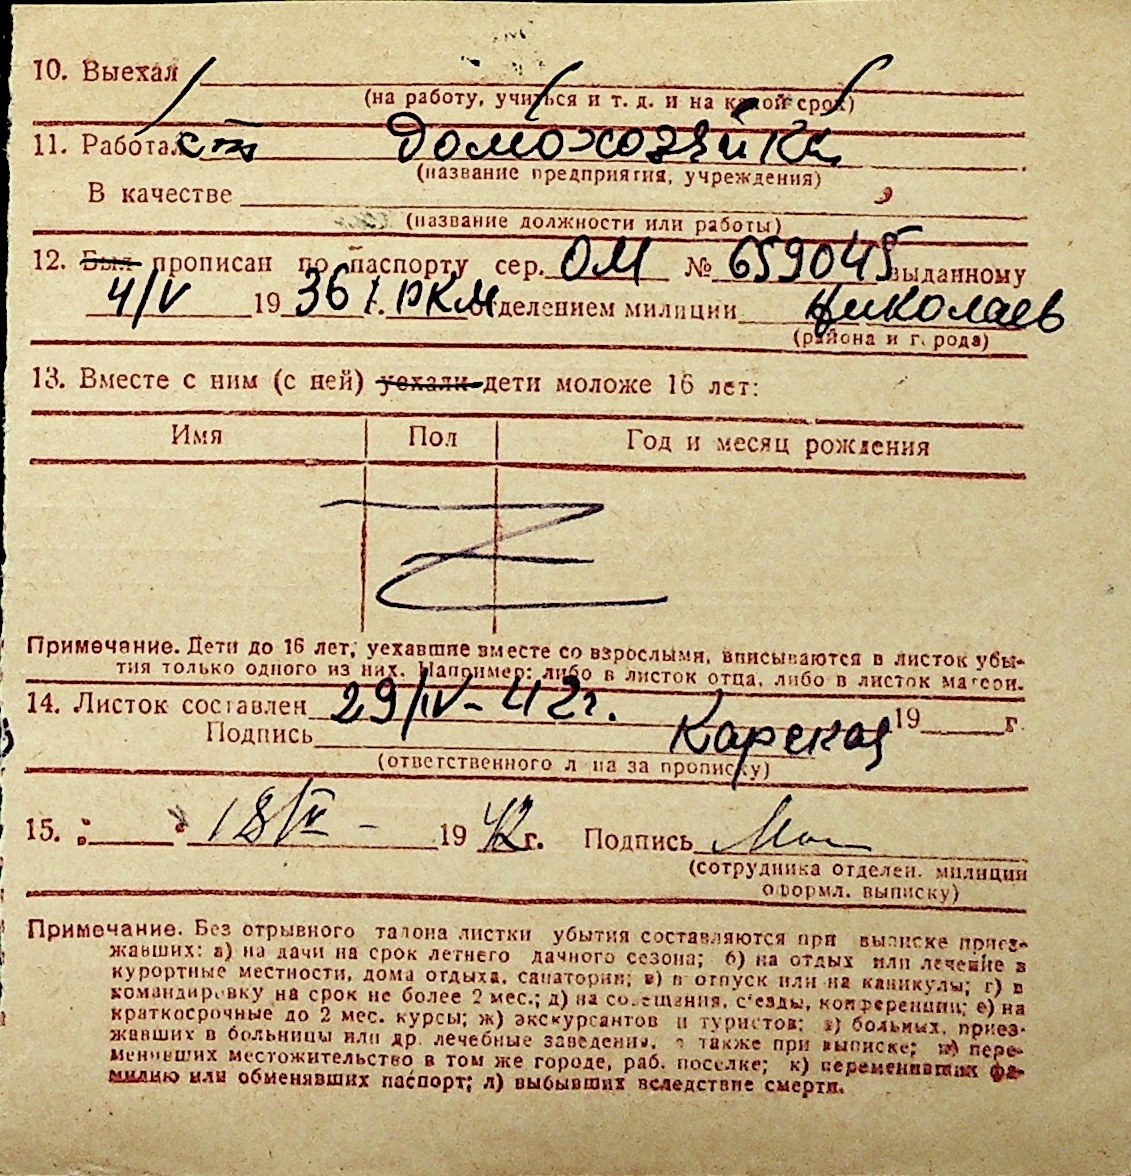 10. Выехал
(на работу, учиться и т. д. и на какой срок)
11. Работал Домохозяйка
(название предприятия, учреждения)
В качестве
(название должности или работы)
12. Был прописан по паспорту сер. ОМ № 659045 выданному
4/V 1936 г. РКМ отделением милиции Николаев
(района и города)
13. Вместе с ним (с ней) уехали дети моложе 16 лет:
Имя Пол Год и месяц рождения
Примечание. Дети до 16 лет, уехавшие вместе со взрослыми, вписываются в листок убы-
тия только одного из них. Например: либо в листок отца, либо в листок матери.
14. Листок составлен 29/IV-42г. 19 г.
Подпись Карская
(ответственного лица за прописку)
15. 1942г. Подпись
(сотрудника отделен. милиции
оформл. выписку)
Примечание. Без отрывного талона листки убытия составляются при выписке приез-
жавших: а) на дачи на срок летнего дачного сезона; б) на отдых или лечение в
курортные местности, дома отдыха, санатории; в) в отпуск или на каникулы; г) в
командировку на срок не более 2 мес.; д) на совещания, съезды, конференции; е) на
краткосрочные до 2 мес. курсы; ж) экскурсантов и туристов; з) больных, приез-
жавших в больницы или др. лечебные заведения, а также при выписке; и) пере-
менивших местожительство в том же городе, раб. поселке; к) переменивших фа-
милию или обменявших паспорт; л) выбывших вследствие смерти.